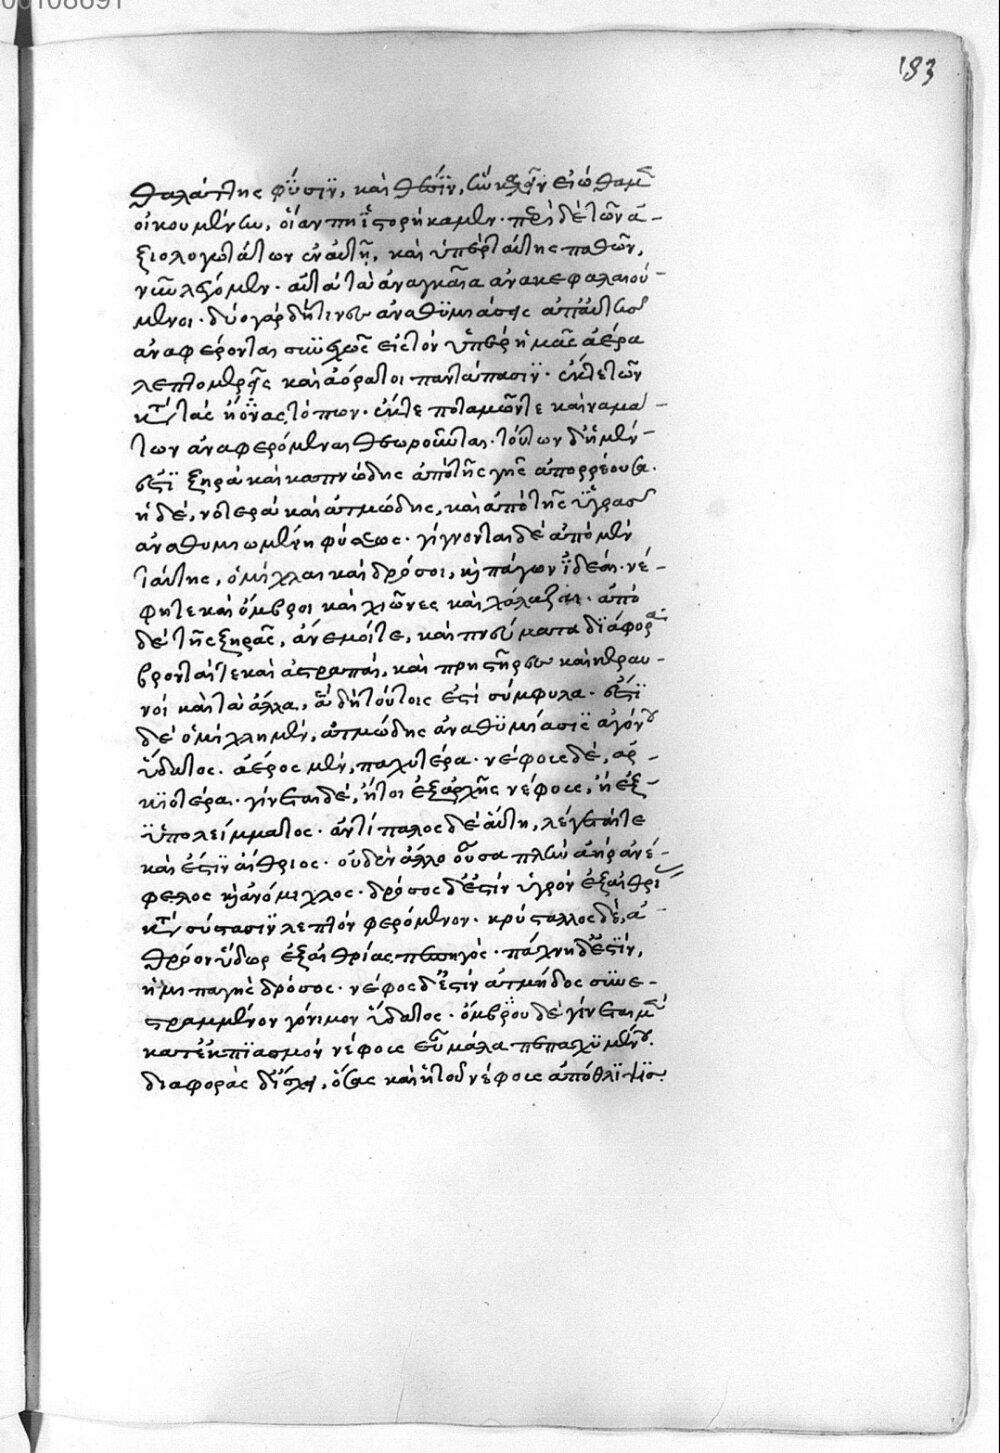 00108691
183
θαλάττης φύσιν, καὶ θέσιν, ἣν καλεῖν εἰώθαμεν
οἰκουμένην, οἵαν πη ἱστορήκαμεν· περὶ δὲ τῶν ἀ-
ξιολογωτάτων ἐν αὐτῇ, καὶ ὑπὲρ ταύτης παθῶν,
νῦν λέγομεν· αὐτὰ τὰ ἀναγκαῖα ἀνακεφαλαιού-
μενοι· δύο γὰρ δή τινες ἀναθυμιάσεις ἀπ' αὐτῆς
ἀναφέρονται συνεχῶς εἰς τὸν ὑπὲρ ἡμᾶς ἀέρα
λεπτομερεῖς καὶ ἀόρατοι παντάπασιν· ἐκ τε τῶν
κατὰ τὰς ἠόνας τόπων· ἐκ τε ποταμῶν τε καὶ ναμά-
των ἀναφερόμεναι θεωροῦνται· τούτων δὴ ἡ μέν
ἐστι ξηρὰ καὶ καπνώδης ἀπὸ τῆς γῆς ἀπορρέουσα·
ἡ δὲ, νοτερὰ καὶ ἀτμώδης, καὶ ἀπὸ τῆς ὑγρᾶς
ἀναθυμιωμένη φύσεως· γίγνονται δὲ ἀπὸ μὲν
ταύτης, ὁμίχλαι καὶ δρόσοι, καὶ πάγων ἰδέαι· νέ-
φη τε καὶ ὄμβροι καὶ χιῶνες καὶ χάλαζαι· ἀπὸ
δὲ τῆς ξηρᾶς, ἄνεμοί τε, καὶ πνευμάτα διάφορα·
βρονταί τε καὶ ἀστραπαὶ, καὶ πρηστῆρες καὶ κεραυ-
νοὶ καὶ τὰ ἄλλα, ἃ δὴ τούτοις ἐστὶ σύμφυλα· ἐστὶ
δὲ ὁμίχλη μὲν, ἀτμώδης ἀναθυμίασις ἄγονος
ὕδατος· ἀέρος μὲν, παχυτέρα· νέφους δὲ, ἀρ-
αιοτέρα· γίνεται δὲ, ἤτοι ἐξ ἀρχῆς νέφους, ἢ ἐξ
ὑπολείμματος· ἀντίπαλος δὲ αὐτῇ, λέγεταί τε
καὶ ἐστὶν αἴθριος· οὐδὲν ἄλλο οὖσα πλὴν ἀὴρ ἀνέ-
φελος καὶ ἀνόμιχλος· δρόσος δ' ἐστὶν ὑγρὸν ἐξ αἰθρίας
κατὰ σύστασιν λεπτὸν φερόμενον· κρύσταλλος δὲ, ἀ-
θρόον ὕδωρ ἐξ αἰθρίας πεπηγός· πάχνη δ' ἐστὶν,
ἡμιπαγὴς δρόσος· νέφος δ' ἐστὶν ἀτμῆδος συνε-
στραμμένον γόνιμον ὕδατος· ὄμβρου δὲ γίνεται μὲν
κατ' ἐκπιασμὸν νέφους εὖ μάλα πεπαχυμένου·
διαφορὰς δ' ἴσχει, ὅσας καὶ ἡ τοῦ νέφους ἀπόθλιψις.